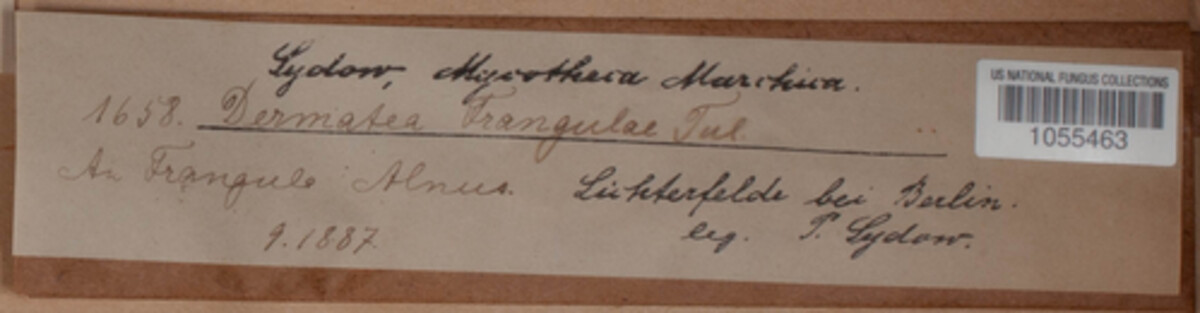 Sydow, Mycotheca Marchica.
1658. Dermatea Frangulae Tul.
An Frangula Alnus. Lichterfelde bei Berlin.
9.1887. leg. P. Sydow.
US NATIONAL FUNGUS COLLECTIONS
1055463